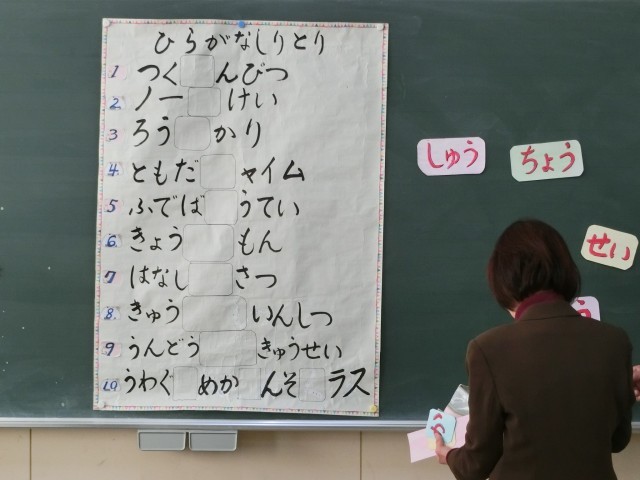 ひらがなしりとり
1 つく んぴつ
2. ノー けい
3 ろう かり
4. ともだ ャイム
5 ふでば うてい
6. きょう もん
7 はなし さつ
8. きゅう いんしつ
9 うんどう きゅうせい
10 うわぐ めか んそ ラス
しゅう
ちょう
せい
う